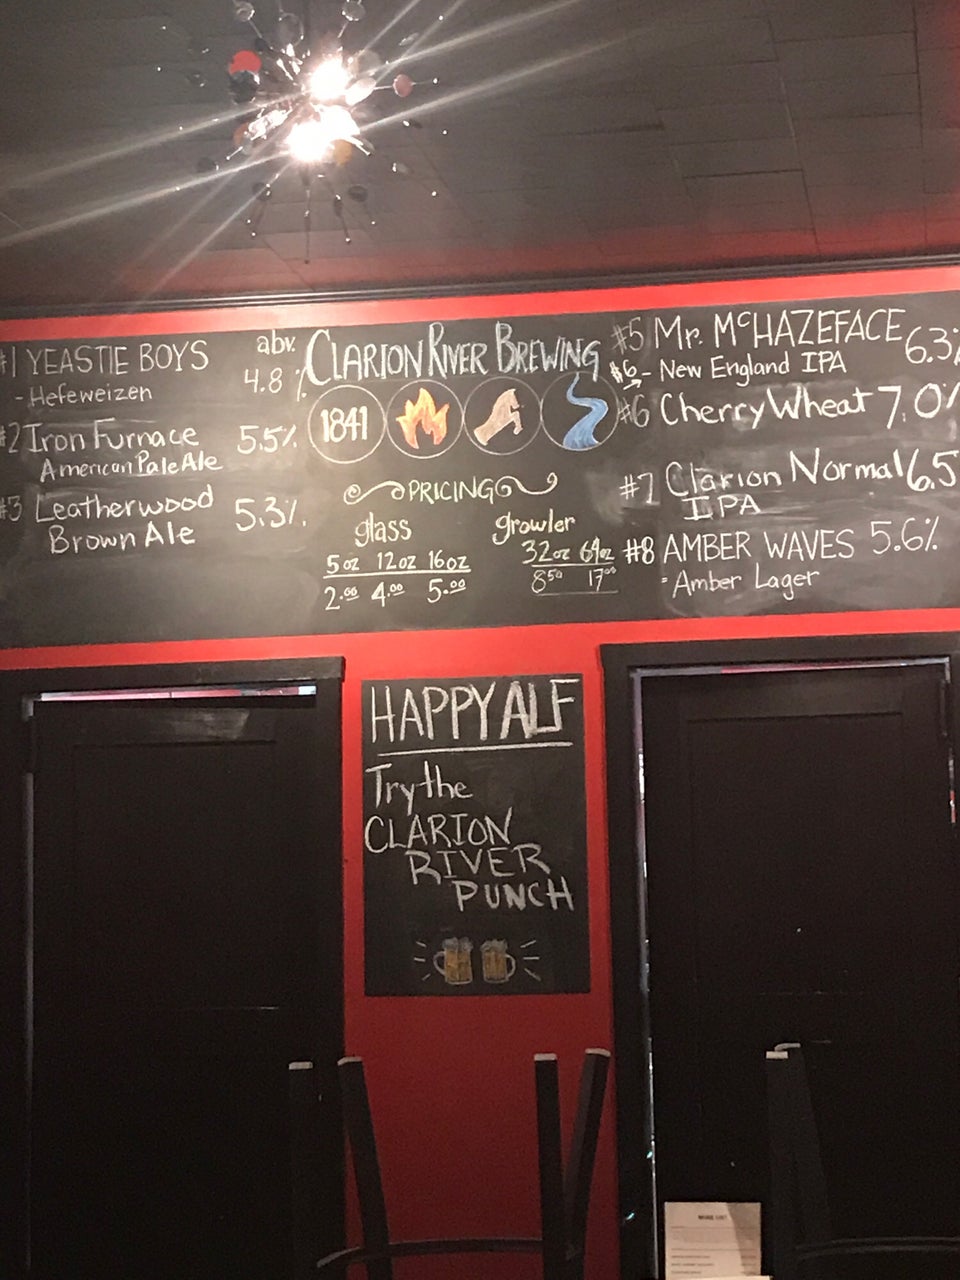 #1 YEASTIE BOYS
abv.
4.8%
- Hefeweizen
#2 Iron Furnace 5.5%
American Pale Ale
#3 Leatherwood 5.3%.
Brown Ale
CLARION RIVER BREWING
1841
PRICING
glass
5oz 12oz 16oz
2.00 4.00 5.00
growler
32oz 64oz
8.50 17.00
#5 Mr. McHAZEFACE 6.3%
$6 - New England IPA
#6 Cherry Wheat 7.0%
#7 Clarion Normal 6.5
IPA
#8 AMBER WAVES 5.6%
- Amber Lager
HAPPY ALF
Try the
CLARION
RIVER
PUNCH